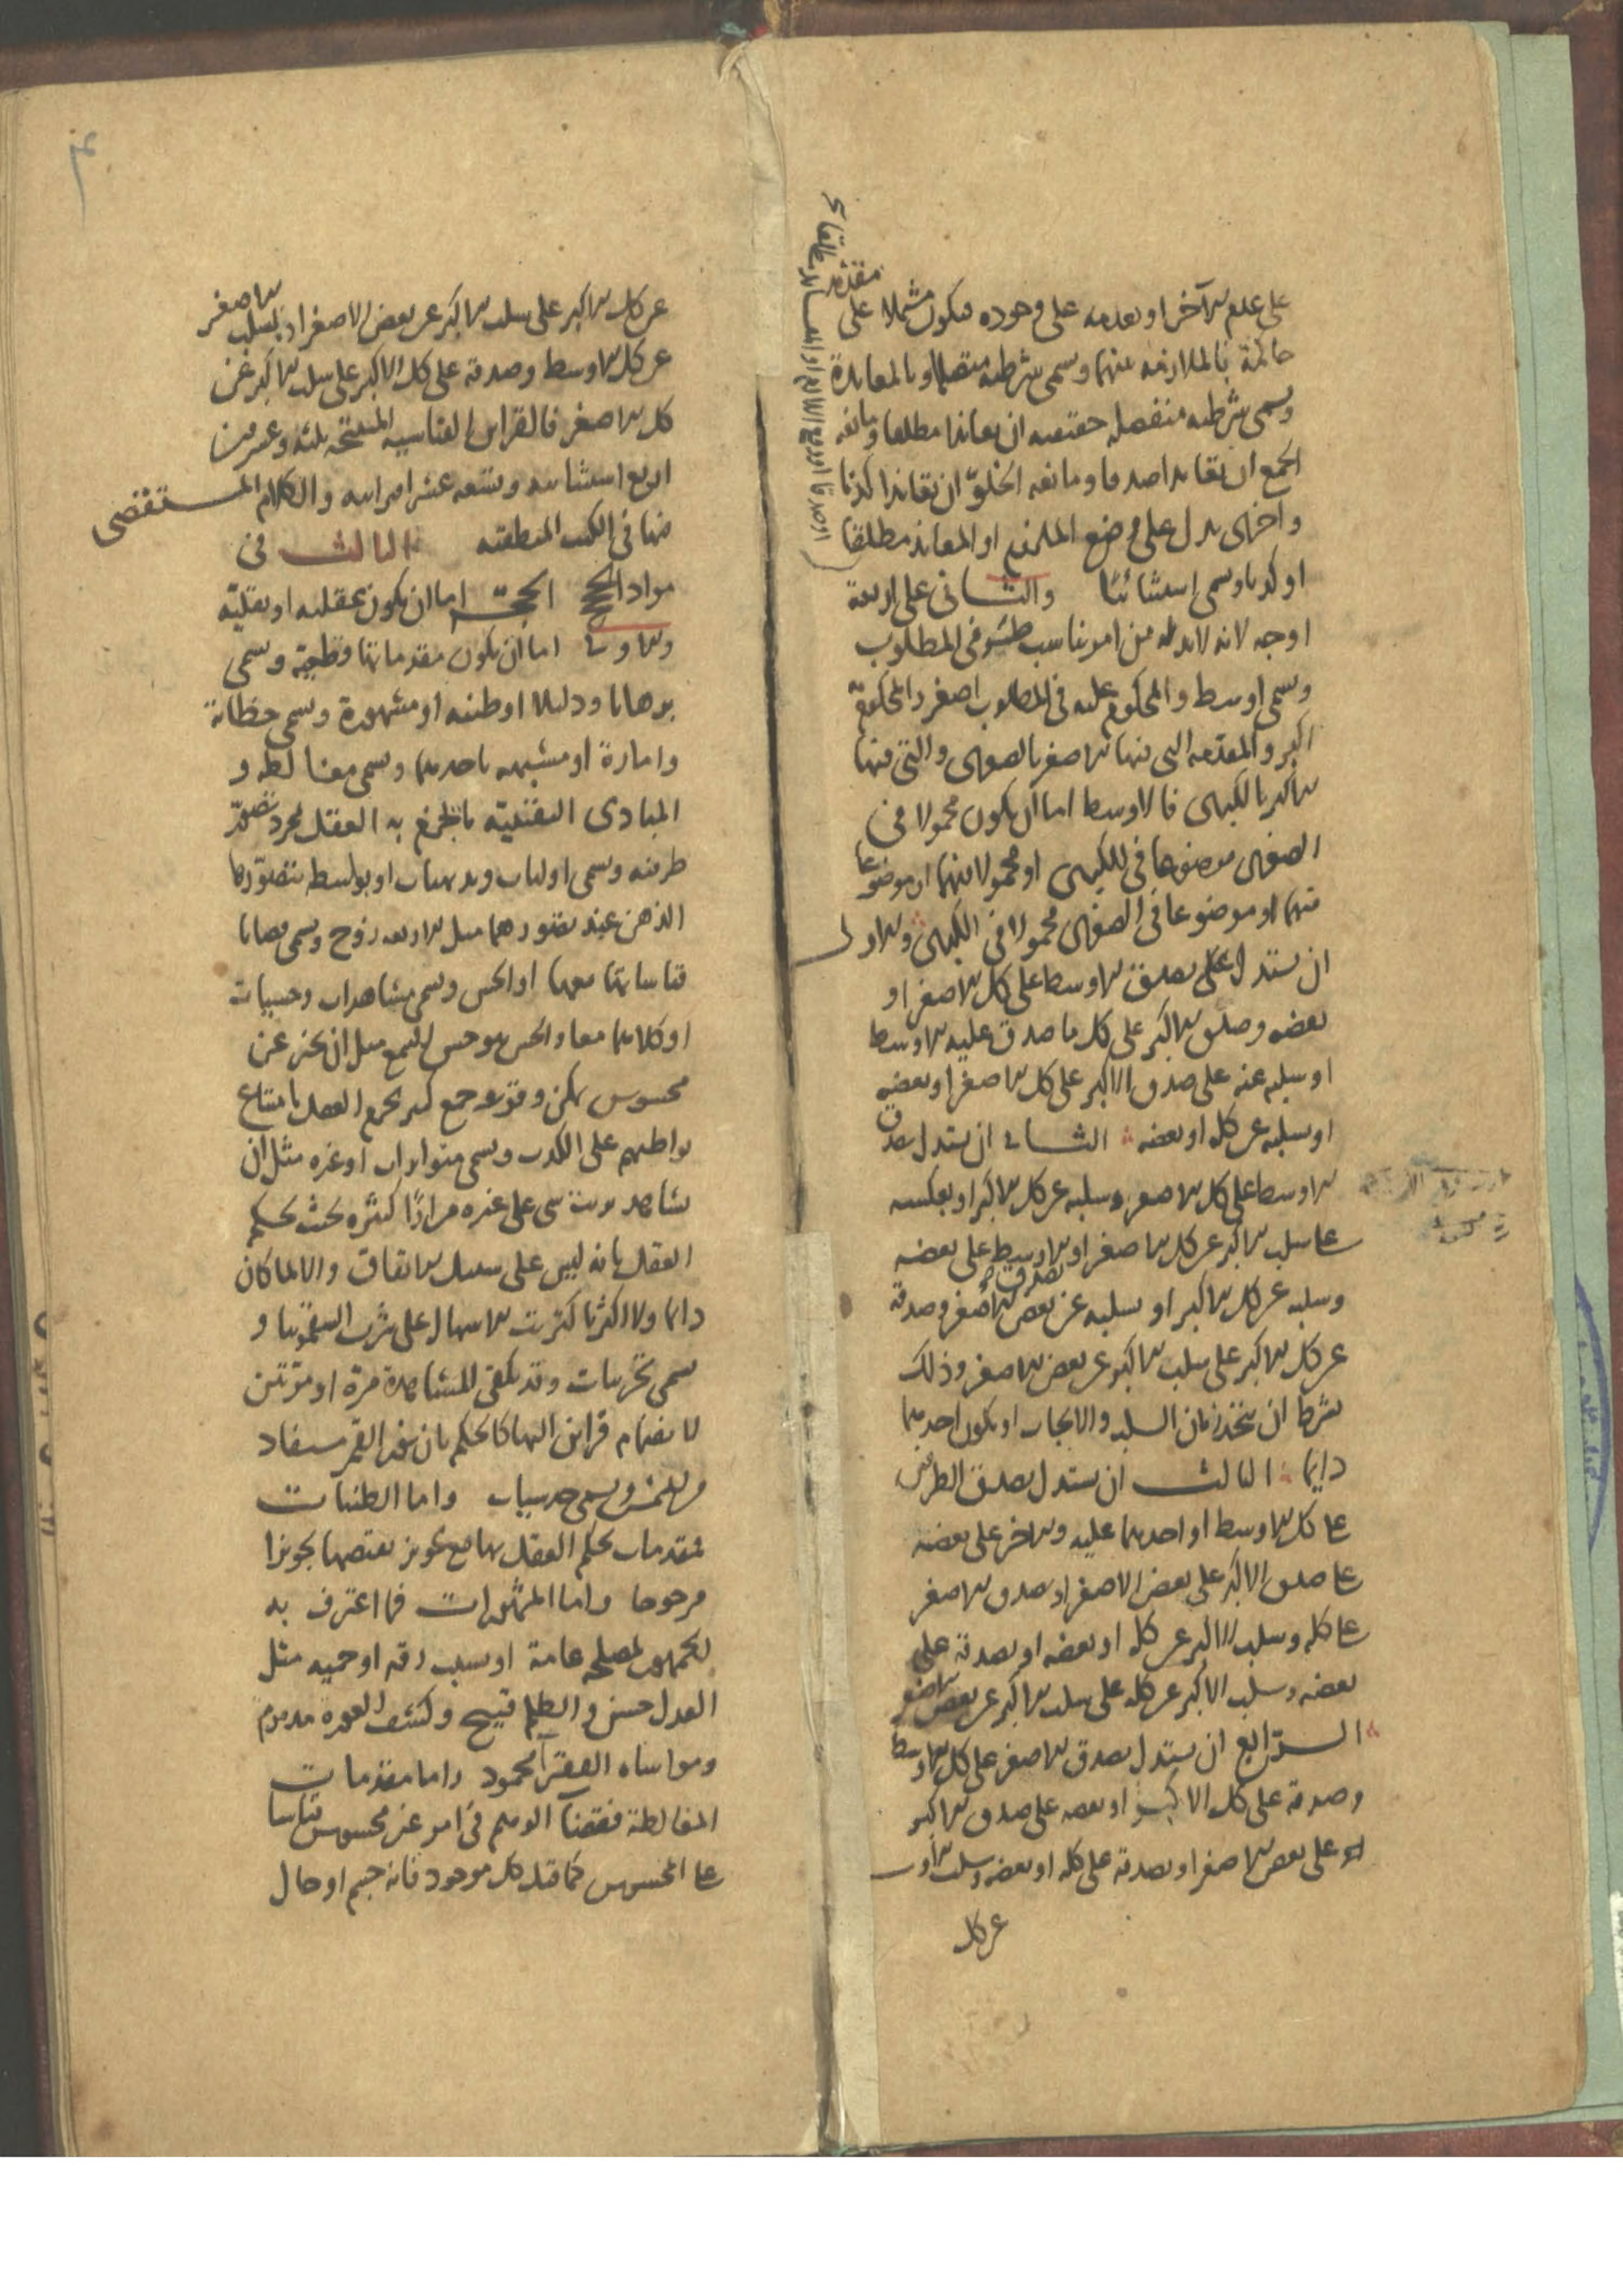 على عدم الآخر او بعدمه على وجوده فيكون مشتملا على مقدمة
حاكمة بالملازمة بينهما وسمى شرطية متصلة او بالمعاندة
وسمى شرطية منفصلة حقيقية ان تعاندا مطلقا ومانعة
الجمع ان تعاندا صدقا ومانعة الخلو ان تعاندا كذبا
واخرى يدل على وضع الملزوم او المعاند مطلقا
او كذبا وسمى استثنائيا والثانى على اربعة
اوجه لانه لابد له من امر يناسب طرفى المطلوب
وسمى اوسط والمحكوم عليه فى المطلوب اصغر والمحكوم به
اكبر والمقدمة التى فيها الاصغر بالصغرى والتى فيها
الاكبر بالكبرى فالاوسط اما ان يكون محمولا فى
الصغرى موضوعا فى الكبرى او محمولا فيهما او موضوعا
فيهما او موضوعا فى الصغرى محمولا فى الكبرى والاول
ان يستدل على بصدق الاوسط على كل الاصغر او
بعضه وصدق الاكبر على كل ما صدق عليه الاوسط
او سلبه عنه على صدق الاكبر على كل الاصغر او بعضه
او سلبه عن كله او بعضه الثانى ان يستدل بصدق
الاوسط على كل الاصغر وسلبه عن كل الاكبر او بعكسه
على سلب الاكبر عن كل الاصغر او بصدق الاوسط على بعضه
وسلبه عن كل الاكبر او سلبه عن بعض الاصغر وصدقه
عن كل الاكبر على سلب الاكبر عن بعض الاصغر وذلك
بشرط ان يتحد زمان السلب والايجاب او يكون احدهما
دايما الثالث ان يستدل بصدق الطرفين
على كل الاوسط او احدهما عليه والاخر على بعضه
على صدق الاكبر على بعض الاصغر او بصدق الاصغر
على كله وسلب الاكبر عن كله او بعضه او بصدقه على
بعضه وسلب الاكبر عن كله على سلب الاكبر عن بعض الاصغر
الرابع ان يستدل بصدق الاصغر على كل الاوسط
وصدقه على كل الاكبر او بعضه على صدق الاكبر
على بعض الاصغر او بصدقه على كله او بعضه وسلب الاوسط
عن كل
عن كل الاكبر على سلب الاكبر عن بعض الاصغر او بسلب الاصغر
عن كل الاوسط وصدقه على كل الاكبر على سلب الاكبر عن
كل الاصغر فالقراين القياسية المنتجة ثلثة وعشرون
اربع استثنائية وتسعة عشر اقترانية والكلام المستقصى
فيها فى الكتب المنطقية الثالث فى
مواد الحجج الحجة اما ان يكون عقلية او نقلية
والاولى اما ان تكون مقدماتها قطعية وسمى
برهانا ودليلا او ظنية او مشهورة وسمى خطابة
وامارة او مشبهة باحدهما وسمى مغالطة و
المبادى اليقينية ما يجزم به العقل بمجرد تصور
طرفيه وسمى اوليات وبديهيات او بواسطة يتصورها
الذهن عند تصورهما مثل الاربعة زوج وسمى قضايا
قياساتها معها او الحس وسمى مشاهدات وحسيات
او كلاهما معا والحس هو حس السمع مثل ان يخبر عن
محسوس يمكن وقوعه جمع كثير يجزم العقل بامتناع
تواطيهم على الكذب وسمى متواترات او غيره مثل ان
يشاهد ترتب شى على غيره مرارا كثيرة بحيث يحكم
العقل بانه ليس على سبيل الاتفاق والا لما كان
دايما ولا اكثريا كترتب الاسهال على شرب السقمونيا و
سمى تجربيات وقد يكفى المشاهدة مرة او مرتين
لانضمام قراين اليها كالحكم بان نور القمر مستفاد
من الشمس وسمى حدسيات واما الظنيات
فمقدمات يحكم العقل بها مع تجويز نقيضها تجويزا
مرجوحا واما المشهورات فما اعترف به
الجمهور لمصلحة عامة او بسبب رقة او حمية مثل
العدل حسن والظلم قبيح وكشف العورة مذموم
ومواساة الفقرآ محمود واما مقدمات
المغالطة فقضايا الوهم فى امر غير محسوس قياسا
على المحسوس كما قيل كل موجود فانه جسم او حال